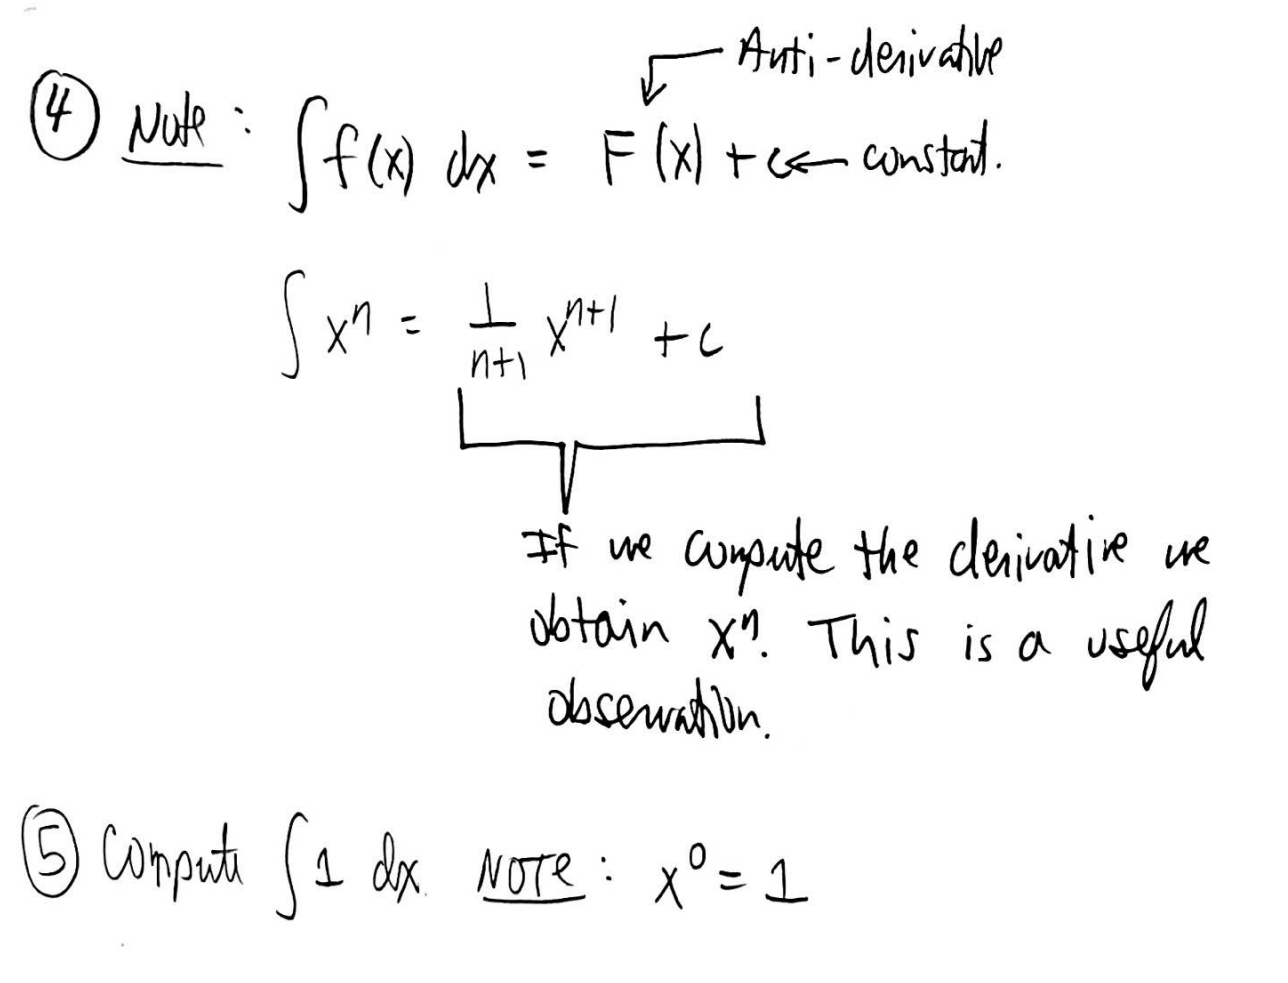 Anti-derivative
④ Note: ∫f(x) dx = F(x) + c ← constant.
∫xⁿ = 1/(n+1) xⁿ⁺¹ + c
If we compute the derivative we
obtain xⁿ. This is a useful
observation.
⑤ Compute ∫1 dx. NOTE: x⁰ = 1